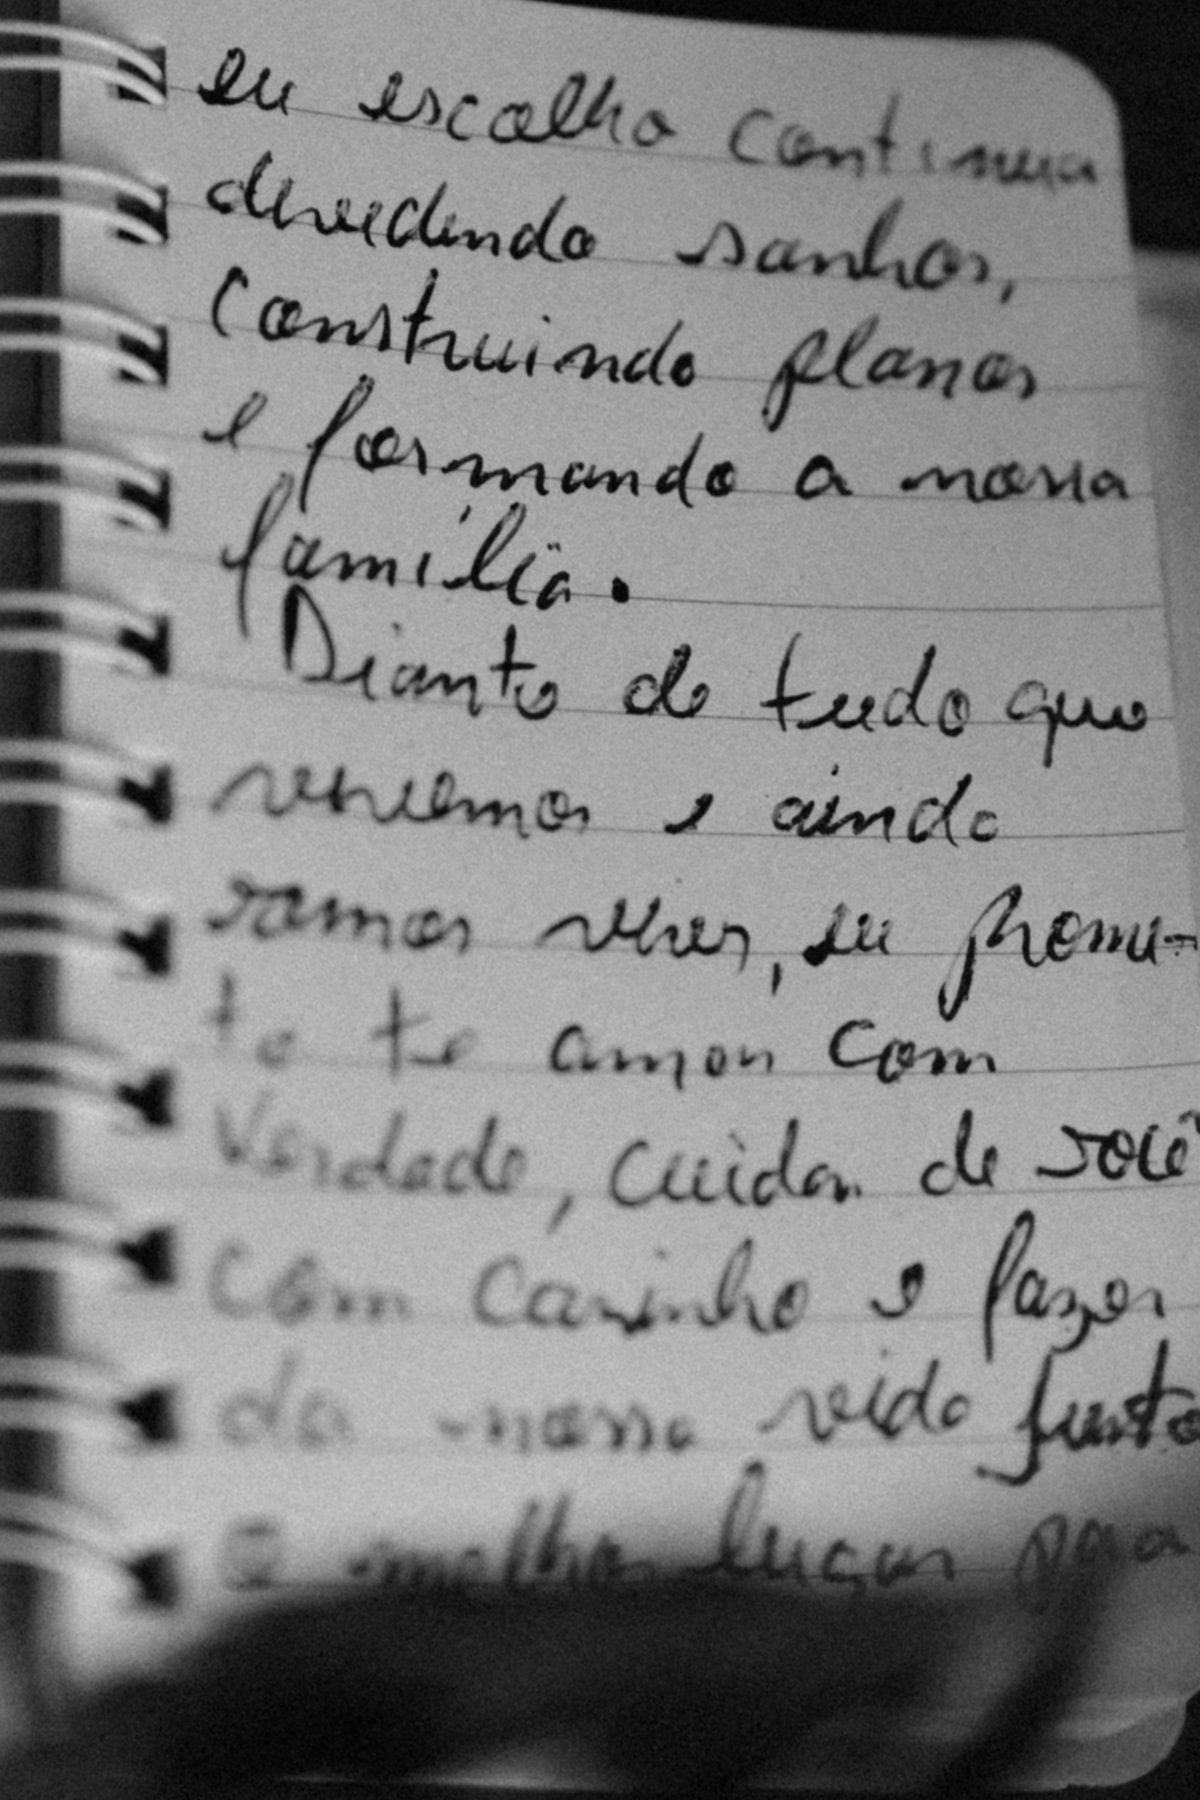 eu escolho continuar
dividindo sonhos,
construindo planos
e formando a nossa
família.
Diante de tudo que
vivemos e ainda
vamos viver, eu prome-
to te amar com
verdade, cuidar de você
com carinho e fazer
da nossa vida junto
o melhor lugar para